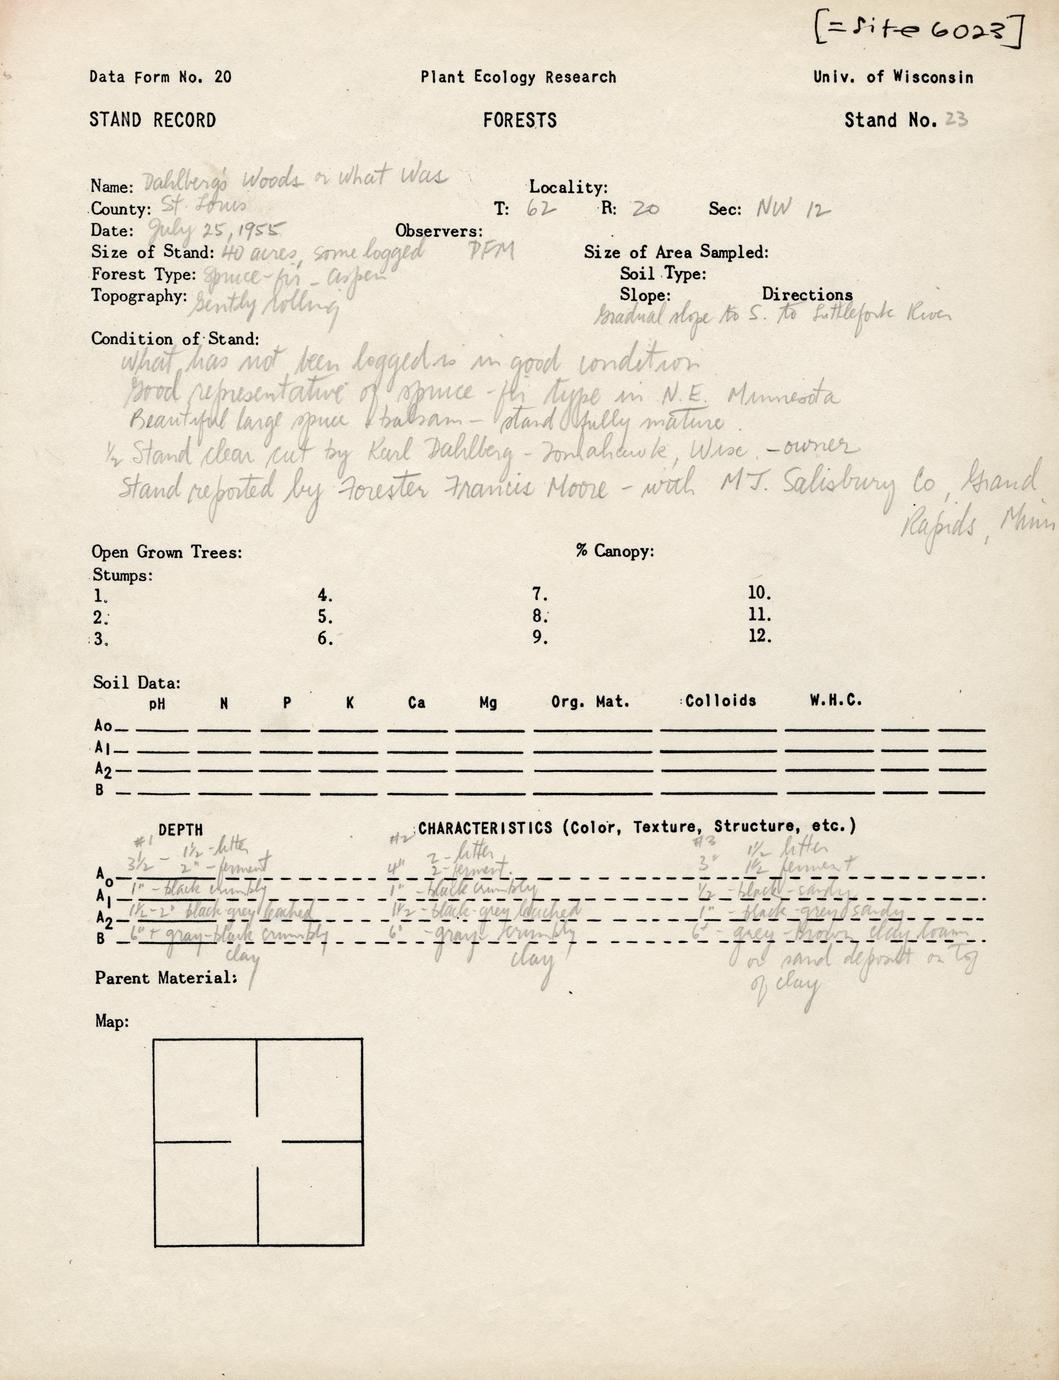 [=Site 6023]
Data Form No. 20 Plant Ecology Research Univ. of Wisconsin
STAND RECORD FORESTS Stand No. 23
Name: Dahlberg's Woods or what was Locality:
County: St. Louis T: 62 R: 20 Sec: NW 12
Date: July 25, 1955 Observers:
Size of Stand: 40 acres, some logged PFM Size of Area Sampled:
Forest Type: Spruce-fir - aspen Soil Type:
Topography: Gently rolling Slope: Directions
Gradual slope to S. to Littlefork River
Condition of Stand:
What has not been logged is in good condition
Good representative of spruce-fir type in N.E. Minnesota
Beautiful large spruce & balsam - stand fully mature.
1/2 Stand clear cut by Karl Dahlberg - Tomahawk, Wisc. - owner
Stand reported by Forester Francis Moore - with M.J. Salisbury Co, Grand
Rapids, Minn
Open Grown Trees: % Canopy:
Stumps:
1. 4. 7. 10.
2. 5. 8. 11.
3. 6. 9. 12.
Soil Data:
pH N P K Ca Mg Org. Mat. Colloids W.H.C.
Ao
A1
A2
B
DEPTH CHARACTERISTICS (Color, Texture, Structure, etc.)
#1 #2 #3
1½ - litter 2 - litter 1½ litter
Ao 3½ - 2" - ferment 4" 2 - ferment. 3" 1½ ferment
A1 1" - black crumbly 1" - black crumbly ½ - black - sandy
A2 1½-2" black-grey leached 1½ - black-grey leached 1" - black-grey sandy
B 6"+ gray-black crumbly 6" - gray crumbly 6+ - grey-brown clay loam
clay clay or sand deposit on top
of clay
Parent Material:
Map: